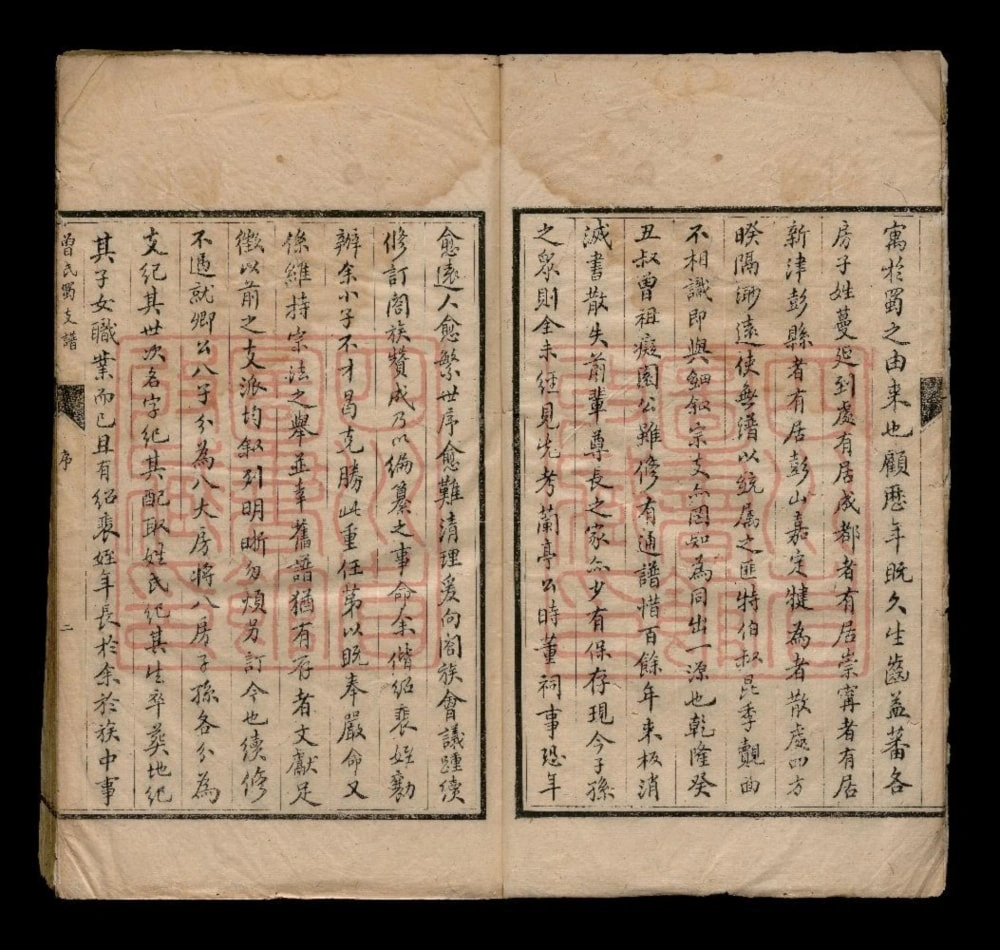 寓於蜀之由来也顧歷年旣久生齒益蕃各
房子姓蔓延到處有居成都者有居崇寧者有居
新津彭縣者有居彭山嘉定犍為者散處四方
暌隔渺遠使無譜以統屬之匪特伯叔昆季覿面
不相識即與細叙宗支亦罔知為同出一源也乾隆癸
丑叔曾祖癡園公雖修有通譜惜百餘年来板消
滅書散失前輩尊長之家亦少有保存現今子孫
之眾則全未經見先考蘭亭公時董祠事恐年
愈遠人愈繁世序愈難清理爰向闔族會議踵續
修訂闔族贊成乃以編纂之事命余偕紹裘姪勷
辦余小子不才曷克勝此重任第以旣奉嚴命又
係維持宗法之舉並幸舊譜猶有存者文獻足
徵以前之支派均叙列明晰勿煩另訂今也續修
不過就卿公八子分為八大房將八房子孫各分為
支紀其世次名字紀其配取姓氏紀其生卒葬地紀
其子女職業而已且有紹裘姪年長於余於族中事
曾氏蜀支譜
序
二